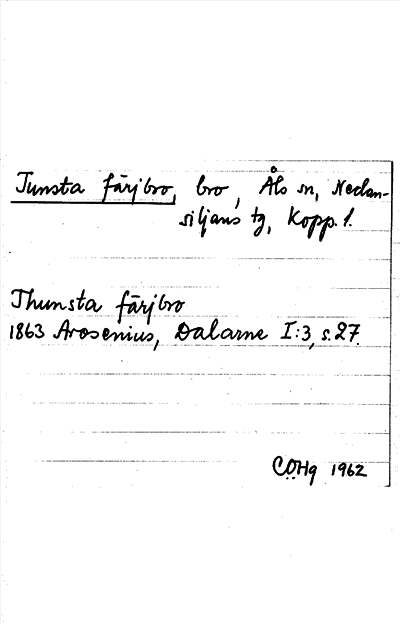 Tunsta färjbro, bro, Åls sn, Nedan-
siljans tg, Kopp. l.
Thunsta färjbro
1863 Arosenius, Dalarne I:3, s. 27.
CÖHg 1962